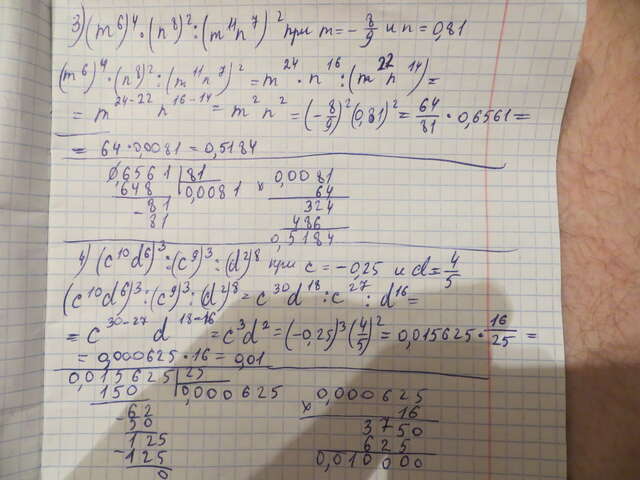 3) (m⁶)⁴·(n⁸)²:(m¹¹n⁷)² при m=-8/9 и n=0,81
(m⁶)⁴·(n⁸)²:(m¹¹n⁷)²=m²⁴·n¹⁶:(m²²n¹⁴)=
=m²⁴⁻²²n¹⁶⁻¹⁴=m²n²=(-8/9)²(0,81)²=64/81·0,6561=
=64·0,0081=0,5184
0,6561 | 81
648 | 0,0081
-81
81
× 0,0081
64
324
486
0,5184
4) (c¹⁰d⁶)³:(c⁹)³:(d²)⁸ при c=-0,25 и d=4/5
(c¹⁰d⁶)³:(c⁹)³:(d²)⁸=c³⁰d¹⁸:c²⁷:d¹⁶=
=c³⁰⁻²⁷d¹⁸⁻¹⁶=c³d²=(-0,25)³(4/5)²=0,015625·16/25=
=0,000625·16=0,01
0,015625 | 25
150 | 0,000625
-62
50
-125
125
0
× 0,000625
16
3750
625
0,010000